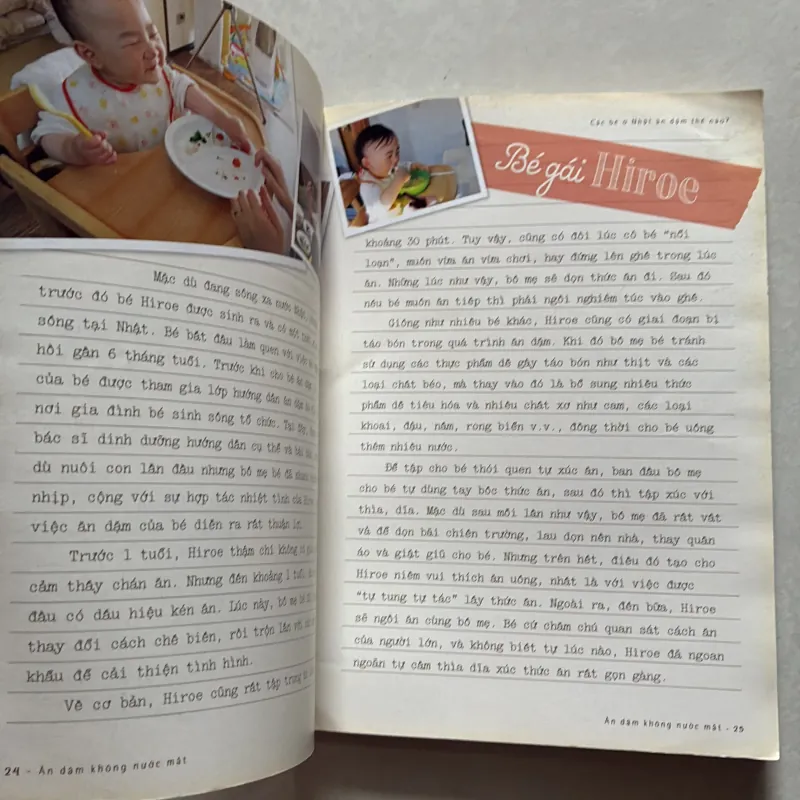 Mặc dù đang sống xa nước
trước đó bé Hiroe được sinh ra và có một
sống tại Nhật. Bé bắt đầu làm quen với việc
hồi gần 6 tháng tuổi. Trước khi cho bé ăn
của bé được tham gia lớp hướng dẫn ăn dặm
nơi gia đình bé sinh sống tổ chức. Tại đây,
bác sĩ dinh dưỡng hướng dẫn cụ thể và
dù nuôi con lần đầu nhưng bố mẹ bé đã
nhịp, cộng với sự hợp tác nhiệt tình của
việc ăn dặm của bé diễn ra rất thuận lợi.
Trước 1 tuổi, Hiroe thậm chí không
cảm thấy chán ăn. Nhưng đến khoảng 1 tuổi,
đầu có dấu hiệu kén ăn. Lúc này, bố mẹ
thay đổi cách chế biến, rồi trộn lẫn với
khẩu để cải thiện tình hình.
Về cơ bản, Hiroe cũng rất tập trung
24 - Ăn dặm không nước mắt
Các bé ở Nhật ăn dặm thế nào?
Bé gái Hiroe
khoảng 30 phút. Tuy vậy, cũng có đôi lúc cô bé "nổi
loạn", muốn vừa ăn vừa chơi, hay đứng lên ghế trong lúc
ăn. Những lúc như vậy, bố mẹ sẽ dọn thức ăn đi. Sau đó
nếu bé muốn ăn tiếp thì phải ngồi nghiêm túc vào ghế.
Giống như nhiều bé khác, Hiroe cũng có giai đoạn bị
táo bón trong quá trình ăn dặm. Khi đó bố mẹ bé tránh
sử dụng các thực phẩm dễ gây táo bón như thịt và các
loại chất béo, mà thay vào đó là bổ sung nhiều thức
phẩm dễ tiêu hóa và nhiều chất xơ như cam, các loại
khoai, đậu, nấm, rong biển v.v., đồng thời cho bé uống
thêm nhiều nước.
Để tập cho bé thói quen tự xúc ăn, ban đầu bố mẹ
cho bé tự dùng tay bốc thức ăn, sau đó thì tập xúc với
thìa, dĩa. Mặc dù sau mỗi lần như vậy, bố mẹ đã rất vất
vả để dọn bãi chiến trường, lau dọn nền nhà, thay quần
áo và giặt giũ cho bé. Nhưng trên hết, điều đó tạo cho
Hiroe niềm vui thích ăn uống, nhất là với việc được
"tự tung tự tác" lấy thức ăn. Ngoài ra, đến bữa, Hiroe
sẽ ngồi ăn cùng bố mẹ. Bé cứ chăm chú quan sát cách ăn
của người lớn, và không biết tự lúc nào, Hiroe đã ngoan
ngoãn tự cầm thìa dĩa xúc thức ăn rất gọn gàng.
Ăn dặm không nước mắt - 25